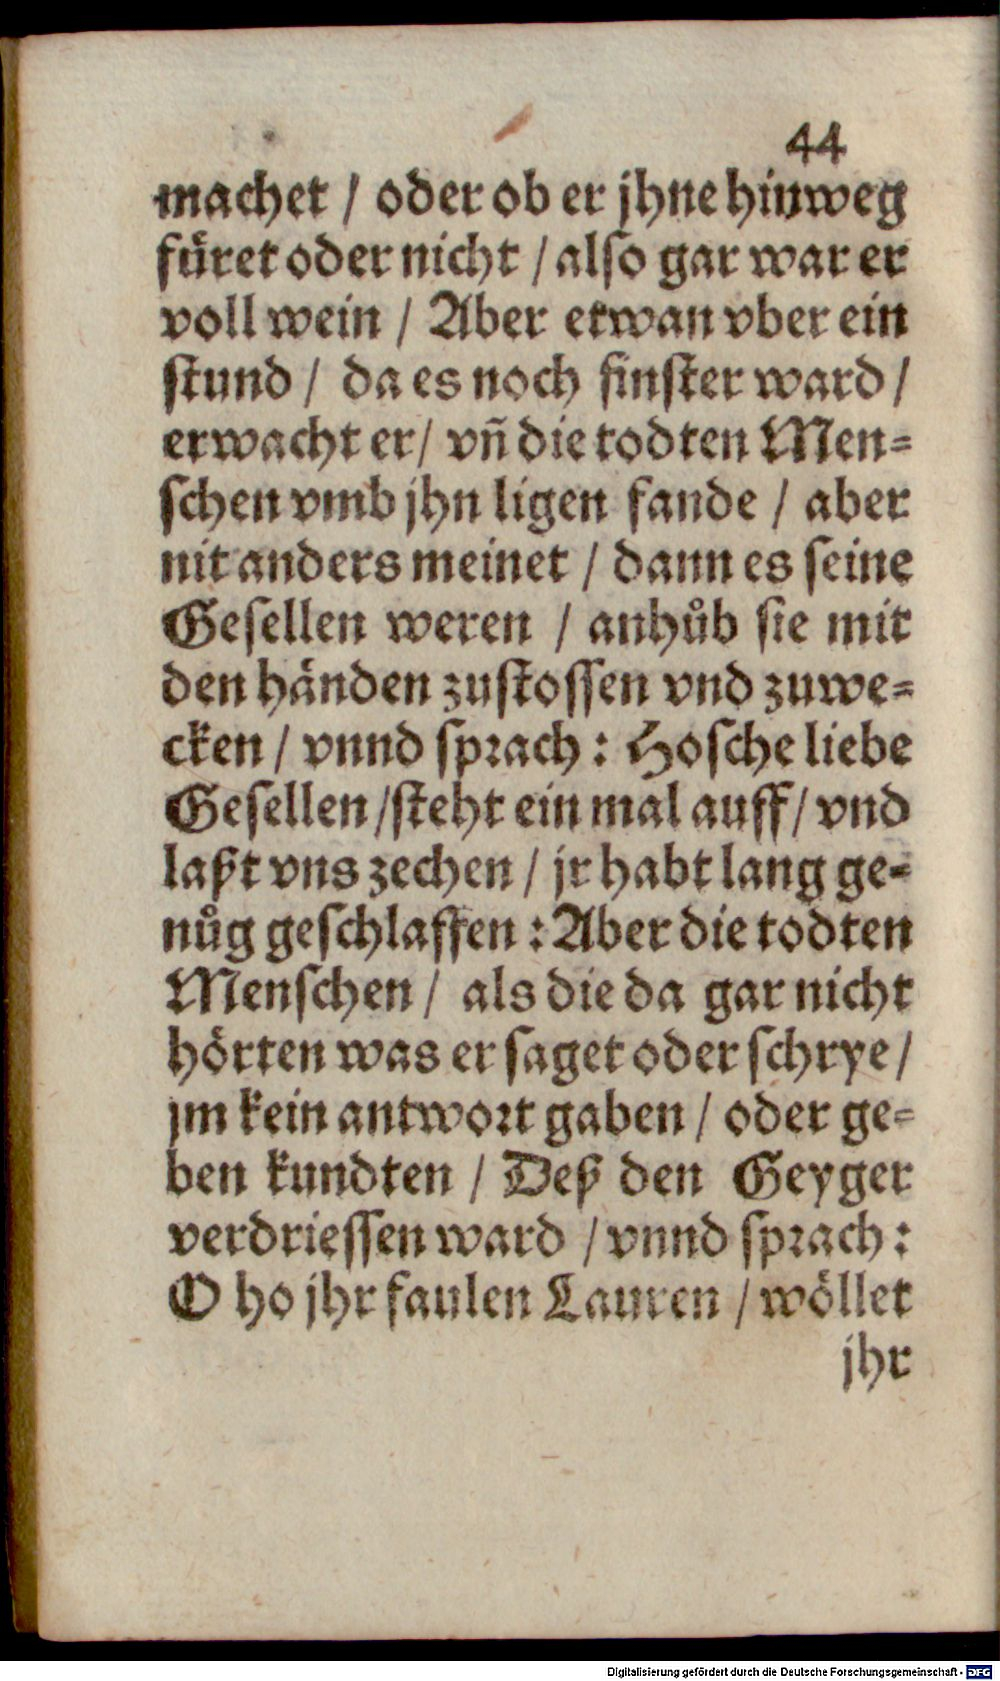 44
machet / oder ob er jhne hinweg
füret oder nicht / also gar war er
voll wein / Aber etwan vber ein
stund / da es noch finster ward /
erwacht er / vñ die todten Men-
schen vmb jhn ligen fande / aber
nit anders meinet / dann es seine
Gesellen weren / anhůb sie mit
den händen zustossen vnd zuwe-
cken / vnnd sprach : Hosche liebe
Gesellen / steht ein mal auff / vnd
laßt vns zechen / jr habt lang ge-
nůg geschlaffen : Aber die todten
Menschen / als die da gar nicht
hörten was er saget oder schrye /
jm kein antwort gaben / oder ge-
ben kundten / Deß den Geyger
verdriessen ward / vnnd sprach :
O ho jhr faulen Lauren / wöllet
jhr
Digitalisierung gefördert durch die Deutsche Forschungsgemeinschaft - DFG